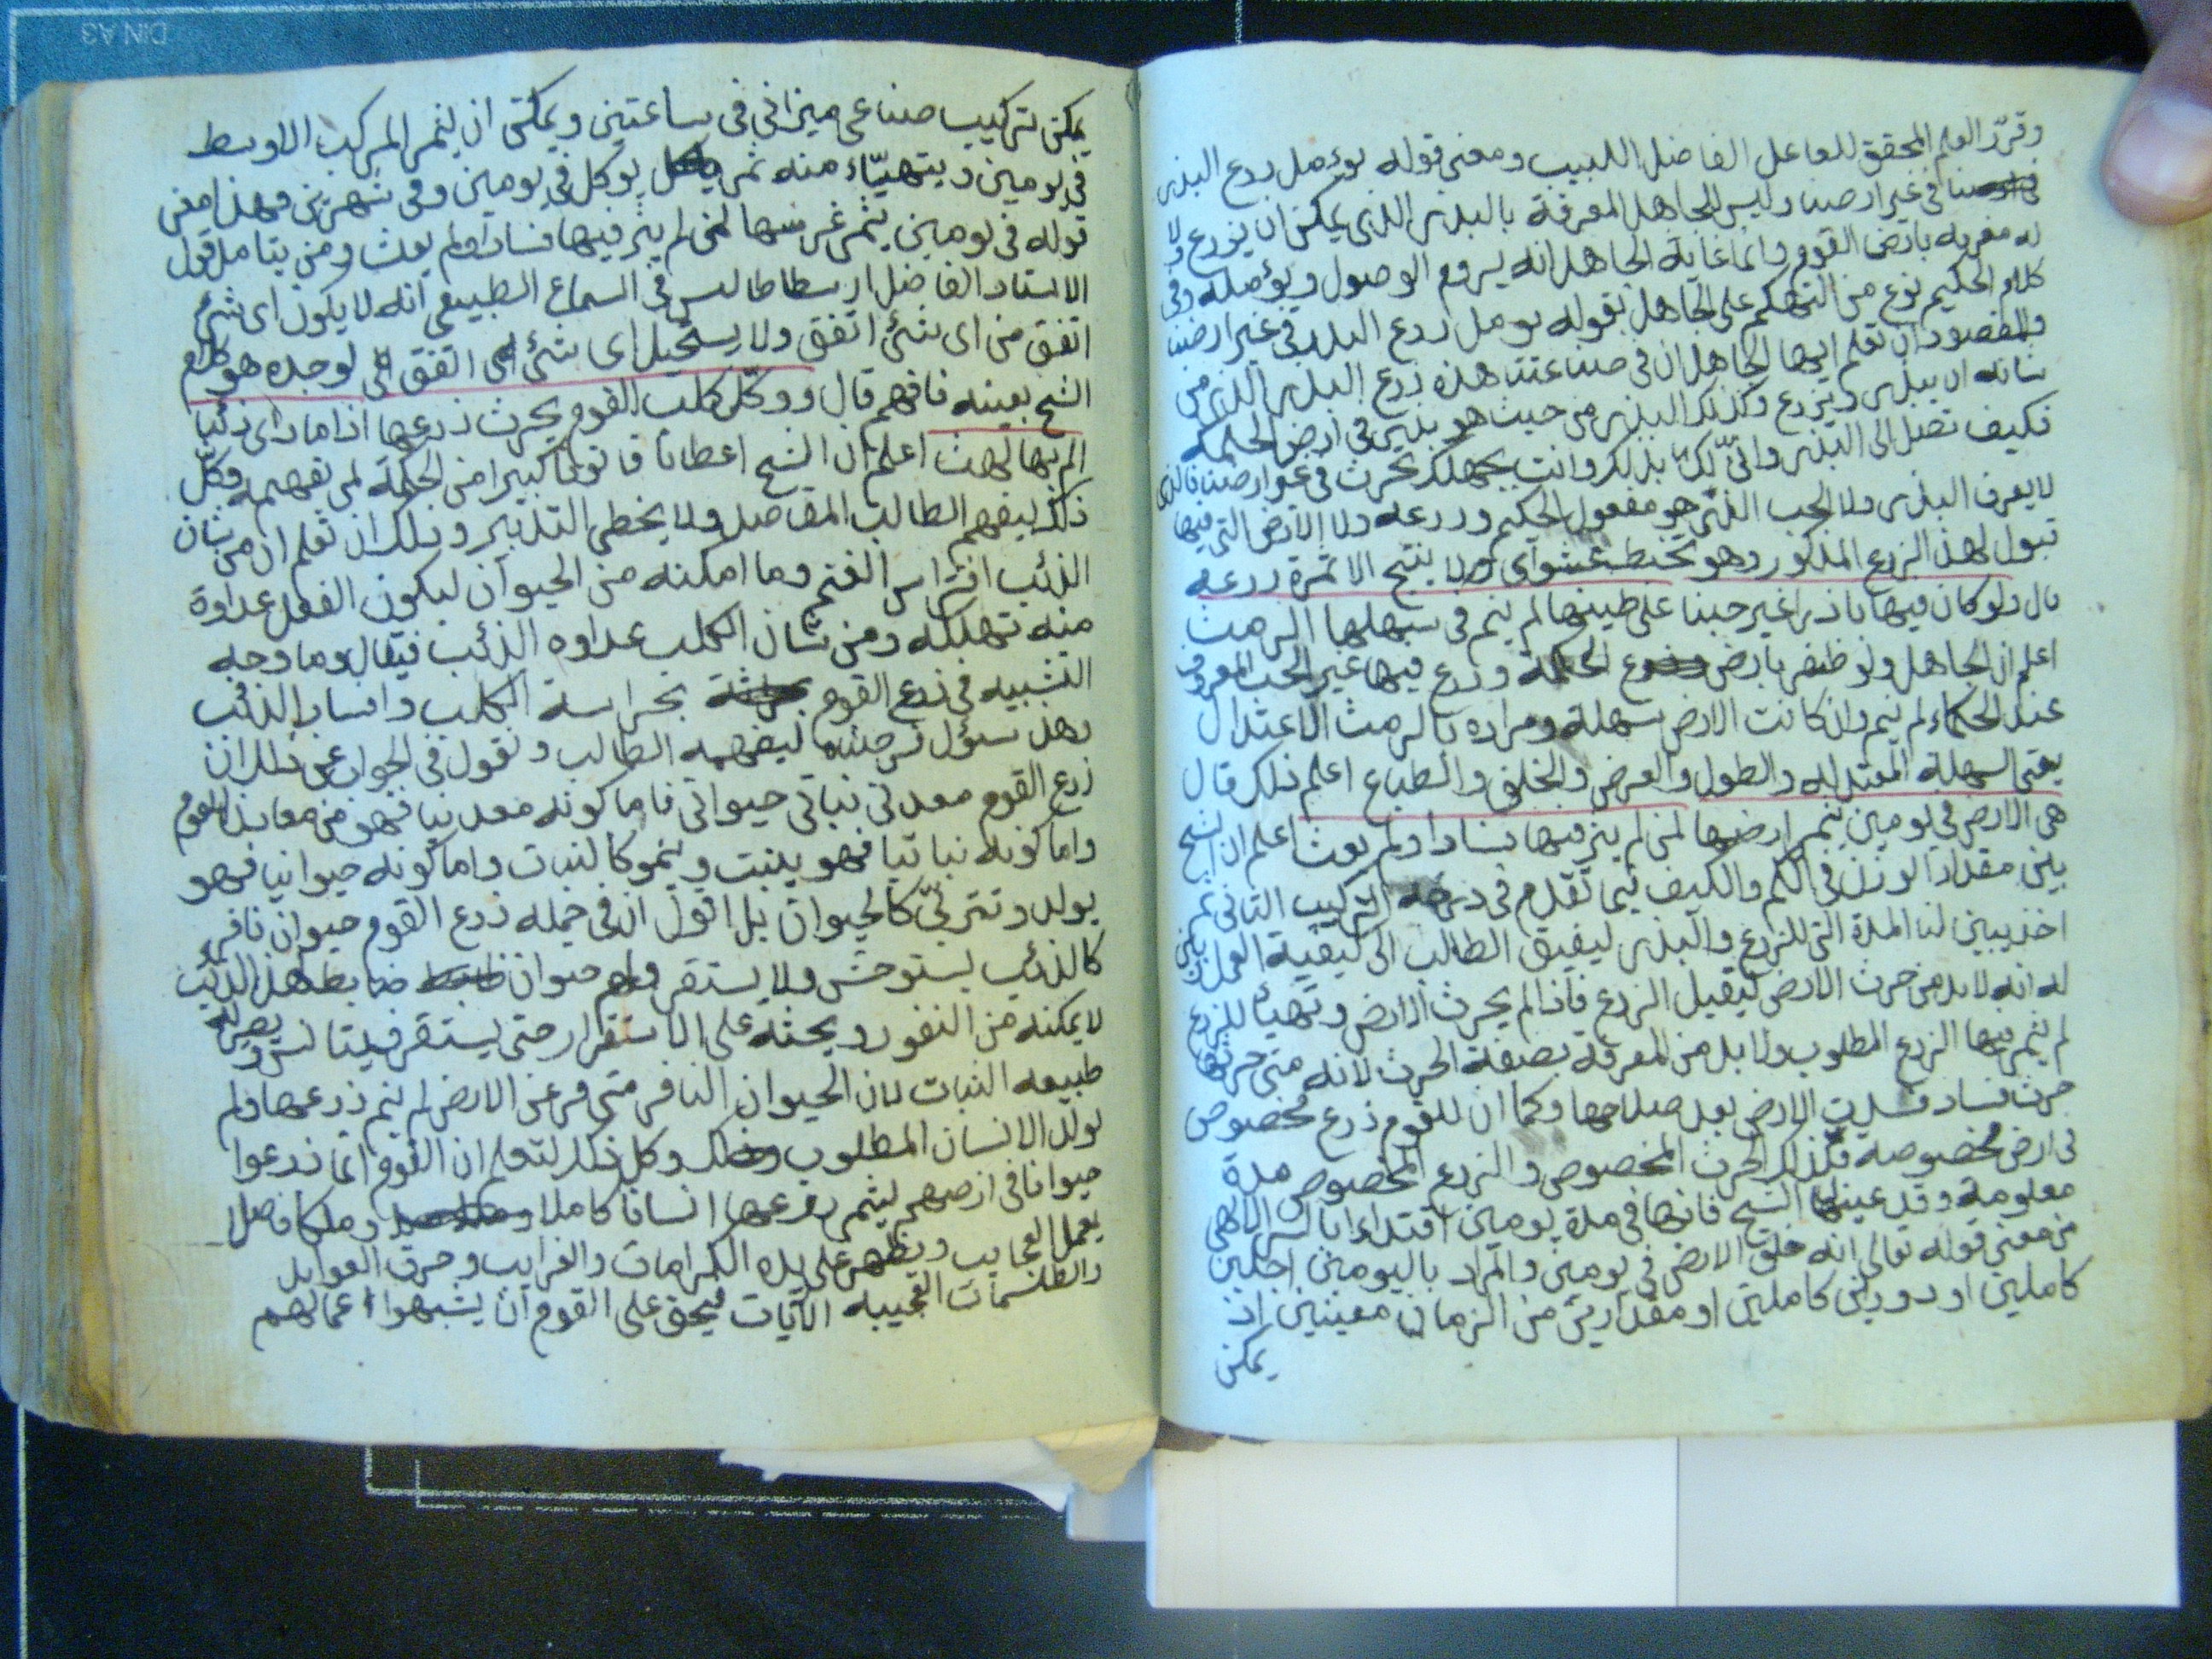 وقرر العلم المحقق للعاقل الفاضل اللبيب ومعنى قوله يؤمل زرع البذر
في غير ارضنا وليس للجاهل المعرفة بالبذر الذي يمكن ان يزرع ولا
له معرفة بارض القوم وانما غاية الجاهل انه يروم الوصول ويؤمله وفي
كلام الحكيم نوع من التهكم على الجاهل بقوله يومل زرع البذر في غير ارضنا
والمقصود ان تعلم ايها الجاهل ان في صناعتنا هذه زرع البذر الذي من
شانه ان يبذر ويزرع وكذلك البذر من حيث هو بذر في ارض الحكمة
فكيف تصل الى البذر وانى لك بذلك وانت بجهلك تحرث في غير ارضنا فالذي
لا يعرف البذر ولا الحب الذي هو مفعول الحكيم وزرعه ولا الارض التي فيها
قبول لهذا الزرع المذكور وهو يخبط عشوآى ولا ينتج الا ثمرة زرعه
قال ولو كان فيها باذرا غير حبنا على طيبها لم ينم في سهلها الرمث
اعلم ان الجاهل ولو ظفر بارض الحكمة وزرع فيها غير الحب المعروف
عند الحكماء لم ينم وان كانت الارض سهلة ومراده بالرمث الاعتدال
يعنى السهلة المعتدلة والطول والعرض والخلق والطباع اعلم ذلك قال
هى الارض في يومين يثمر ارضها لمن لم يثر فيها فسادا ولم يعث اعلم ان الشيخ
بين مقدار الوزن في الكم والكيف فيما تقدم في درجة التركيب الثاني ثم
اخذ يبين لنا المدة التي للزرع والبذر ليفيق الطالب الى كيفية العمل بين
له انه لا بد من حرث الارض ليقبل الزرع فاذا لم يحرث الارض وتهيأ للزرع
لم يثمر فيها الزرع المطلوب ولا بد من المعرفة بصفة الحرث لانه متى حرثها
حرث فساد فسدت الارض بعد صلاحها وكما ان للقوم زرع مخصوص
في ارض مخصوصه فكذلك الحرث المخصوص والزرع المخصوص مدة
معلومة وقد عينها الشيخ فانها في مدة يومين اقتداء بالسر الالهى
من معنى قوله تعالى انه خلق الارض في يومين والمراد باليومين اجلين
كاملين او دورين كاملين او مقدارين من الزمان معينين اذ
يمكن
يمكن تركيب صناعى ميزاني في ساعتين ويمكن ان يثمر المركب الاوسط
في يومين ويتهيّاء منه ثمر يوكل في يومين وفي شهرين فهذا معنى
قوله في يومين يثمر غرسها لمن لم يثر فيها فسادا ولم يعث ومن يتامل قول
الاستاد الفاضل ارسطاطاليس في السماع الطبيعى انه لا يكون اى شئ
اتفق من اى شئ اتفق ولا يستحيل اى شئ اتفق الى لوجده هو كلام
الشيخ بعينه فافهم قال ووكل كلب القوم يحرث زرعها اذا ما راى ذئبا
الم بها لهث اعلم ان الشيخ اعطانا قانونا كبيرا من الحكمة لمن تفهمه وكل
ذلك ليفهم الطالب المفاصل ولا يخطى التدبير وذلك ان تعلم ان من شان
الذئب افتراس الغنم وما امكنه من الحيوان ليكون الفعل عداوة
منه تهلكه ومن شان الكلب عداوه الذئب فيقال وما وجه
التشبيه في زرع القوم بحراسة الكلب وافساد الذئب
وهل سؤل فرضناه ليفهمه الطالب ونقول في الجواب عن ذلك ان
زرع القوم معدني نباتي حيواني فاما كونه معدنيا فهو من معادن القوم
واما كونه نباتيا فهو ينبت وينمو كالنبات واما كونه حيوانيا فهو
يولد وتتربىّ كالحيوان بل اقول ان في جملة زرع القوم حيوان نافر
كالذئب يستوحش ولا يستقر ولهم حيوان ضابط لهذا الذيب
لا يمكنه من النفور ويحثه على الاستقرار حتى يستقر فيتانس ويصير له
طبيعه الثبات لان الحيوان النافر متى فر عن الارض لم ينم زرعها ولم
يولد الانسان المطلوب وكل ذلك لتعلم ان القوم انما زرعوا
حيوانا في ارضهم ليثمر زرعها انسانا كاملا وملكا فاضلا
يعمل العجايب ويظهر على يده الكرامات والغرايب وخرق العوايد
والطلسمات العجيبه الآيات فيحق على القوم ان يشبهوا اعمالهم